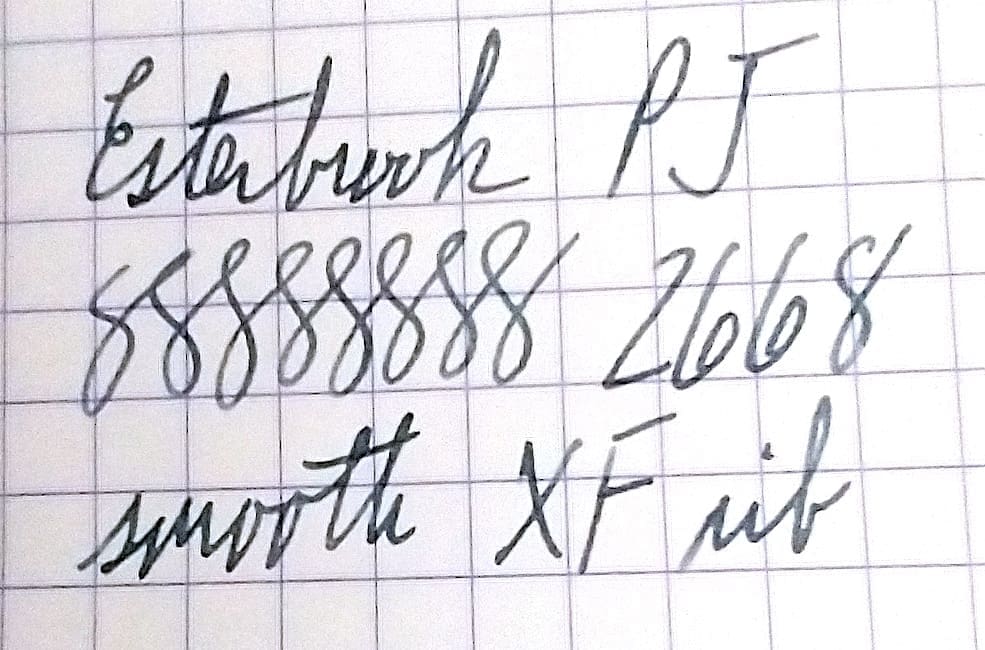 Esterbrook PJ
88888888 2668
smooth XF nib